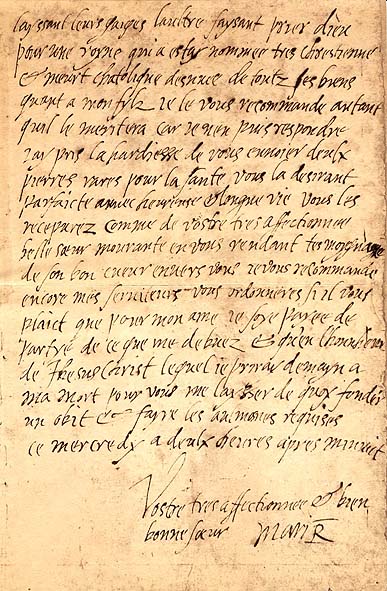 laissant leurs gaiges lautre faysant prier dieu
pour une royne qui a estay nommee tres chrestienne
& meurt chatolique desnuee de toutz ses biens
quant a mon fylz ie le vous recommande autant
quil le meritera car ie nen puis respondre
Iay pris la hardiesse de vous envoier deulx
pierres rares pour la sante vous la desirant
parfaicte avvec heureuse & longue vie Vous les
receparez comme de vostre tres affectionnee
belle sœur mourante en vous rendant tesmoygnage
de son bon cueur envers vous ie vous recommande
encore mes serviteurs Vous ordonneres si il vous
plaict que pour mon ame ie soye payee de
partye de ce que me debvez & quen lhonneur
de Iesus Christ lequel ie priray demayn a
ma mort pour vous me laysser de quoy fonder
un obit & fayre les aumosnes requises
ce mercredy a deulx heures apres minuict
Vostre tres affectionnee & bien
bonne sœur Mari R